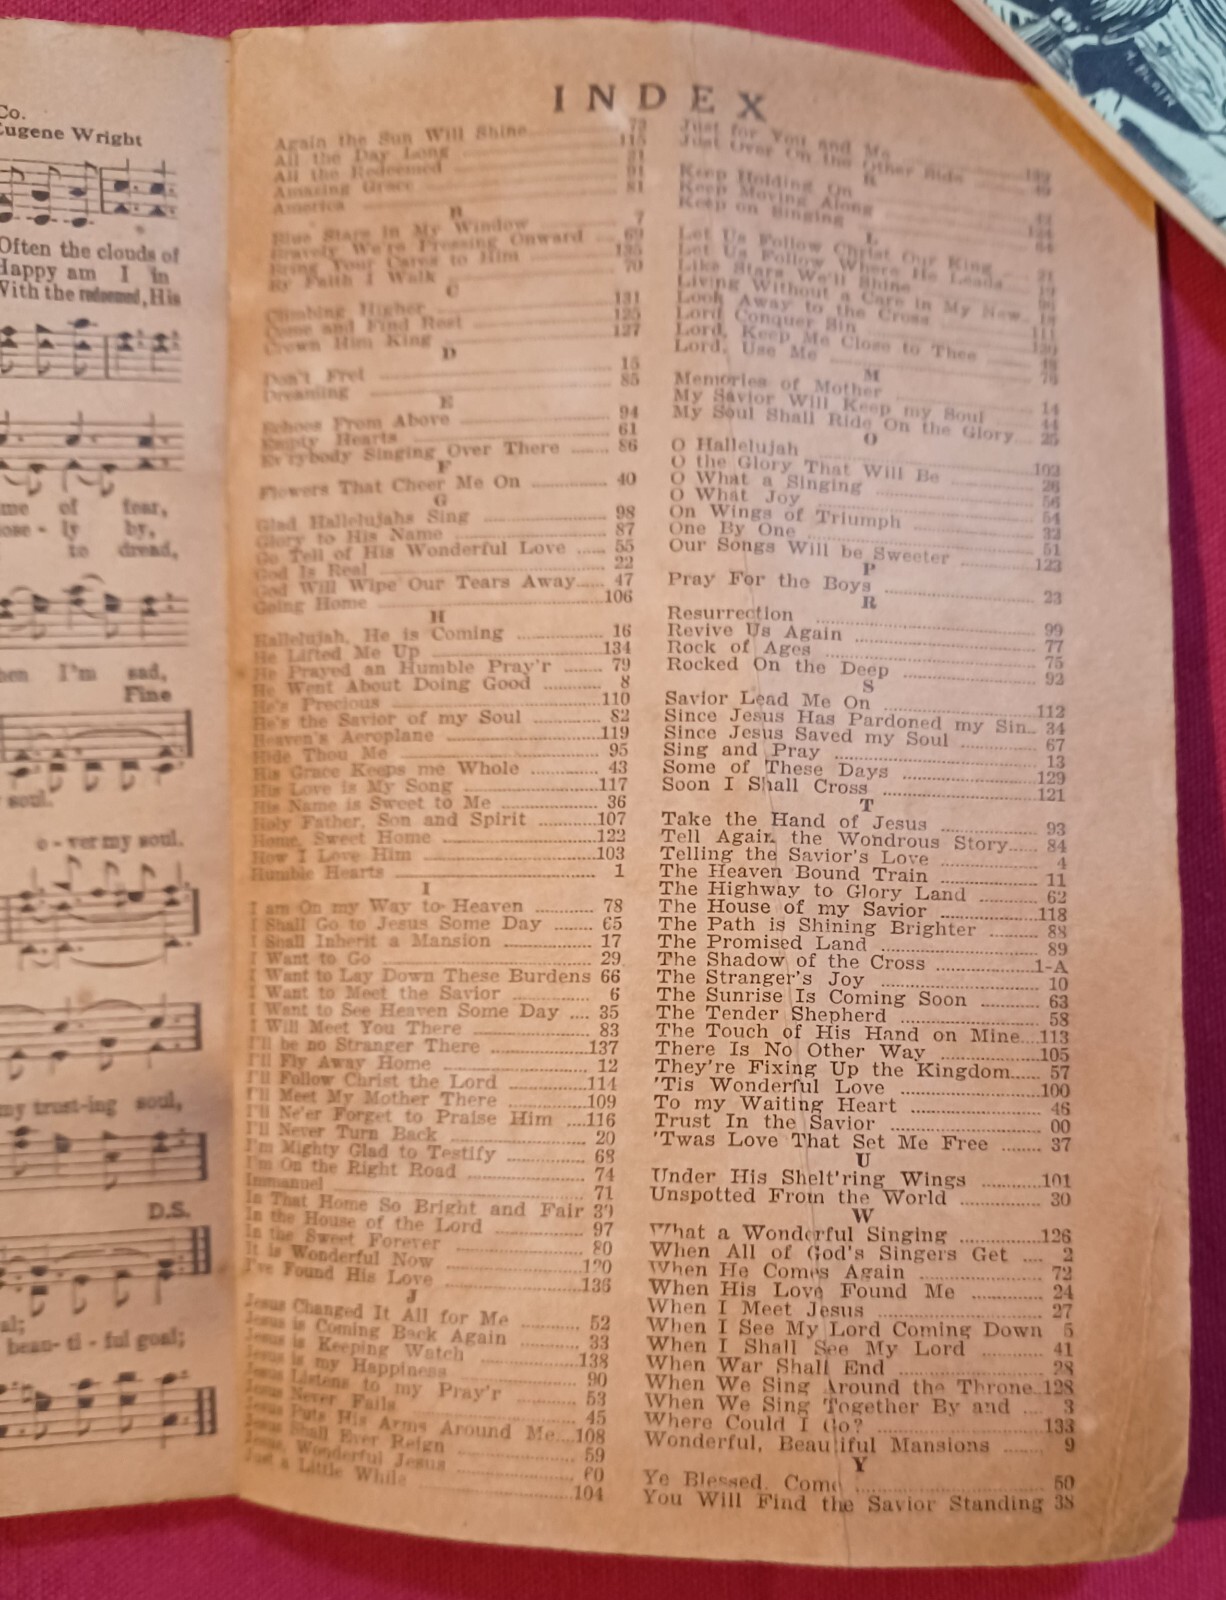 Co.
Eugene Wright
Often the clouds of
Happy am I in
With the redeemed, His
me of fear,
ose - ly by,
to dread,
en I'm sad,
Fine
soul.
o - ver my soul.
my trust-ing soul,
D.S.
al;
beau- ti - ful goal;
INDEX
Again the Sun Will Shine 73
All the Day Long 115
All the Redeemed 31
Amazing Grace 91
America 81
B
Blue Stars in My Window 7
Bravely We're Pressing Onward 69
Bring Your Cares to Him 135
By Faith I Walk 70
C
Climbing Higher 131
Come and Find Rest 125
Crown Him King 127
D
Don't Fret 15
Dreaming 85
E
Echoes From Above 94
Empty Hearts 61
Everybody Singing Over There 86
F
Flowers That Cheer Me On 40
G
Glad Hallelujahs Sing 98
Glory to His Name 87
Go Tell of His Wonderful Love 55
God Is Real 22
God Will Wipe Our Tears Away 47
Going Home 106
H
Hallelujah, He is Coming 16
He Lifted Me Up 134
He Prayed an Humble Pray'r 79
He Went About Doing Good 8
He's Precious 110
He's the Savior of my Soul 82
Heaven's Aeroplane 119
Hide Thou Me 95
His Grace Keeps me Whole 43
His Love is My Song 117
His Name is Sweet to Me 36
Holy Father, Son and Spirit 107
Home, Sweet Home 122
How I Love Him 103
Humble Hearts 1
I
I am On my Way to Heaven 78
I Shall Go to Jesus Some Day 65
I Shall Inherit a Mansion 17
I Want to Go 29
I Want to Lay Down These Burdens 66
I Want to Meet the Savior 6
I Want to See Heaven Some Day 35
I Will Meet You There 83
I'll be no Stranger There 137
I'll Fly Away Home 12
I'll Follow Christ the Lord 114
I'll Meet My Mother There 109
I'll Ne'er Forget to Praise Him 116
I'll Never Turn Back 20
I'm Mighty Glad to Testify 68
I'm On the Right Road 74
Immanuel 71
In That Home So Bright and Fair 39
In the House of the Lord 97
In the Sweet Forever 80
It is Wonderful Now 120
I've Found His Love 136
J
Jesus Changed It All for Me 52
Jesus is Coming Back Again 33
Jesus is Keeping Watch 138
Jesus is my Happiness 90
Jesus Listens to my Pray'r 53
Jesus Never Fails 45
Jesus Puts His Arms Around Me 108
Jesus Shall Ever Reign 59
Jesus, Wonderful Jesus 60
Just a Little While 104
Just for You and Me
Just Over On the Other Side 49
K
Keep Holding On
Keep Moving Along
Keep on Singing 64
L
Let Us Follow Christ Our King 21
Let Us Follow Where He Leads 19
Like Stars We'll Shine
Living Without a Care in My New 18
Look Away to the Cross 111
Lord Conquer Sin
Lord, Keep Me Close to Thee 48
Lord, Use Me 76
M
Memories of Mother 14
My Savior Will Keep my Soul 44
My Soul Shall Ride On the Glory 25
O
O Hallelujah 102
O the Glory That Will Be 26
O What a Singing 56
O What Joy 54
On Wings of Triumph 32
One By One 51
Our Songs Will be Sweeter 123
P
Pray For the Boys 23
R
Resurrection 99
Revive Us Again 77
Rock of Ages 75
Rocked On the Deep 92
S
Savior Lead Me On 112
Since Jesus Has Pardoned my Sin 34
Since Jesus Saved my Soul 67
Sing and Pray 13
Some of These Days 129
Soon I Shall Cross 121
T
Take the Hand of Jesus 93
Tell Again the Wondrous Story 84
Telling the Savior's Love 4
The Heaven Bound Train 11
The Highway to Glory Land 62
The House of my Savior 118
The Path is Shining Brighter 88
The Promised Land 89
The Shadow of the Cross 1-A
The Stranger's Joy 10
The Sunrise Is Coming Soon 63
The Tender Shepherd 58
The Touch of His Hand on Mine 113
There Is No Other Way 105
They're Fixing Up the Kingdom 57
'Tis Wonderful Love 100
To my Waiting Heart 46
Trust In the Savior 00
'Twas Love That Set Me Free 37
U
Under His Shelt'ring Wings 101
Unspotted From the World 30
W
What a Wonderful Singing 126
When All of God's Singers Get 2
When He Comes Again 72
When His Love Found Me 24
When I Meet Jesus 27
When I See My Lord Coming Down 5
When I Shall See My Lord 41
When War Shall End 28
When We Sing Around the Throne 128
When We Sing Together By and 3
Where Could I Go? 133
Wonderful, Beautiful Mansions 9
Y
Ye Blessed, Come 50
You Will Find the Savior Standing 38